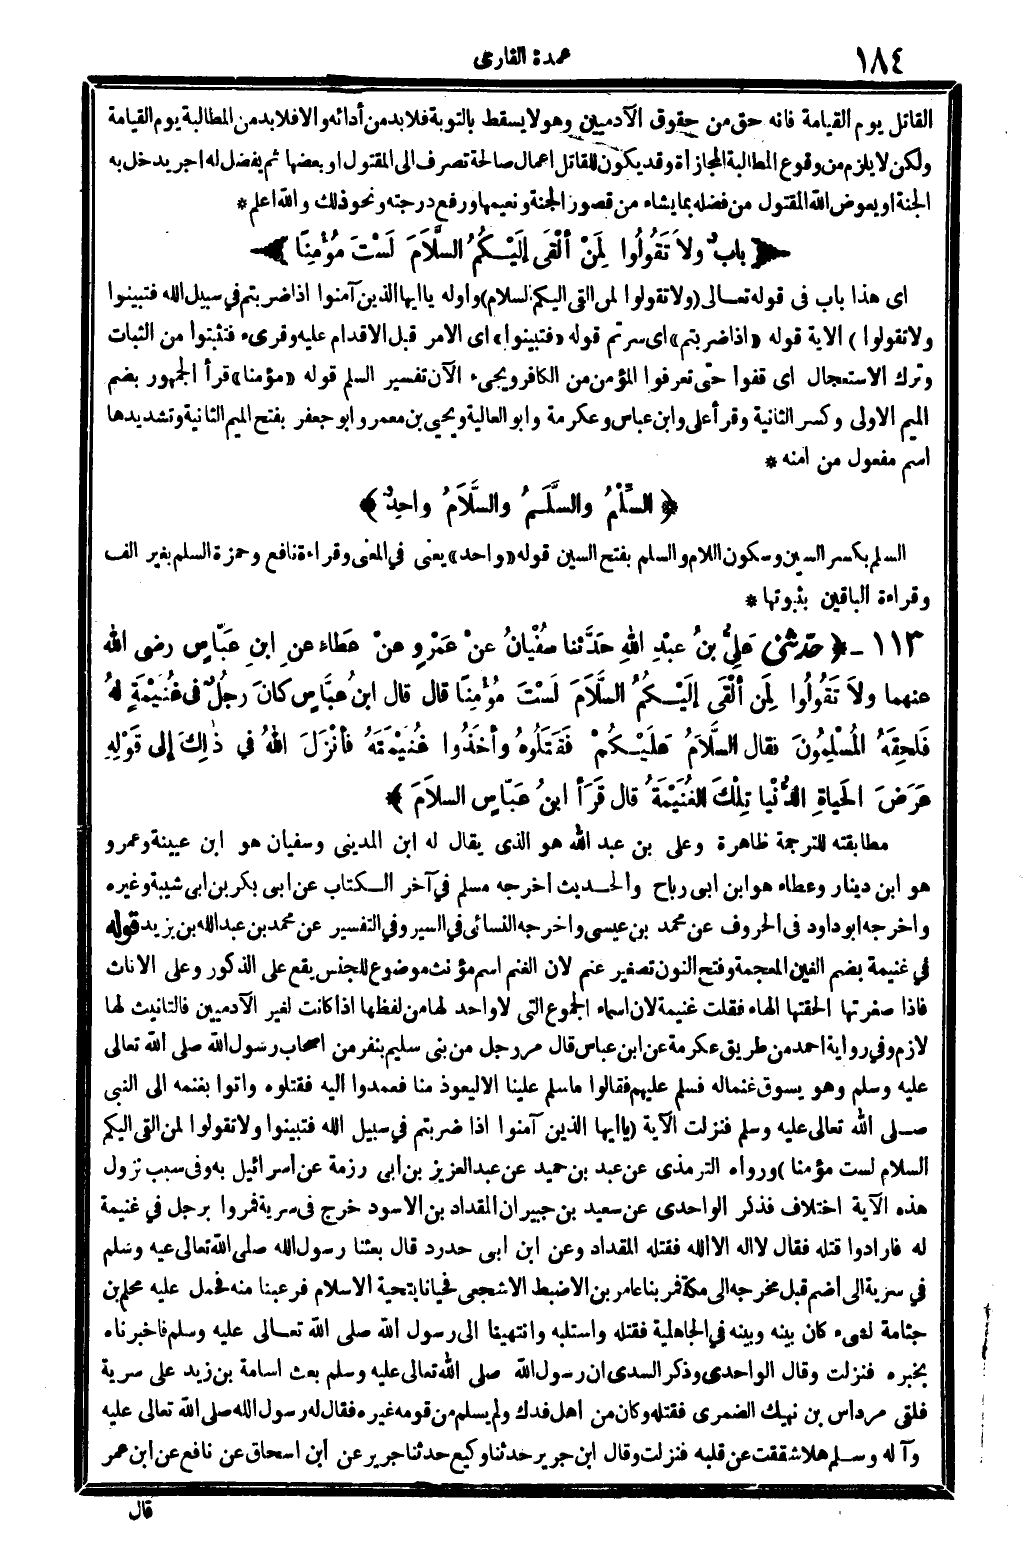 ١٨٤
عمدة القارى
القاتل يوم القيامة فانه حق من حقوق الآدميين وهو لا يسقط بالتوبة فلا بد من أدائه والا فلا بد من المطالبة يوم القيامة
ولكن لا يلزم من وقوع المطالبة المجازاة وقد يكون للقاتل اعمال صالحة تصرف الى المقتول او بعضها ثم يفضل له اجر يدخل به
الجنة او يعوض الله المقتول من فضله بما يشاء من قصور الجنة ونعيمها ورفع درجته ونحو ذلك والله اعلم *
﴿ بابٌ ولاَ تَقُولُوا لِمَنْ ألْقَى إلَيْكُمُ السَّلَامَ لَسْتَ مُؤْمِنًا ﴾
اى هذا باب فى قوله تعالى (ولا تقولوا لمن القى اليكم السلام) وأوله يا ايها الذين آمنوا اذا ضربتم في سبيل الله فتبينوا
ولا تقولوا ) الاية قوله «اذا ضربتم» اى سرتم قوله «فتبينوا» اى الامر قبل الاقدام عليه وقرىء فتثبتوا من الثبات
وترك الاستعجال اى قفوا حتى تعرفوا المؤمن من الكافر ويجىء الآن تفسير السلم قوله «مؤمنا» قرأ الجمهور بضم
الميم الاولى وكسر الثانية وقرأ على وابن عباس وعكرمة وابو العالية ويحيى بن معمر وابو جعفر بفتح الميم الثانية وتشديدها
اسم مفعول من امنه *
﴿ السِّلْمُ والسَّلَمُ والسَّلَامُ واحِدٌ ﴾
السلم بكسر السين وسكون اللام والسلم بفتح السين قوله «واحد» يعنى في المعنى وقراءة نافع وحمزة السلم بغير الف
وقراءة الباقين بثبوتها *
١١٣ ـ ﴿ حدثنى عَلِيُّ بنُ عبْدِ اللهِ حَدَّثَنا سُفْيانُ عنْ عَمْرٍو عنْ عَطاءٍ عنِ ابنِ عَبَّاسٍ رضى الله
عنهما ولاَ تَقُولُوا لِمَنْ ألْقَى إلَيْكُمُ السَّلَامَ لَسْتَ مُؤْمِنًا قال قال ابنُ عبَّاسٍ كانَ رجُلٌ فى غُنَيْمَةٍ لهُ
فَلَحِقَهُ المُسْلِمُونَ فقال السَّلَامُ عَلَيْكُمْ فَقَتَلُوهُ وأخَذُوا غُنَيْمَتَهُ فأنْزَلَ اللهُ في ذٰلِكَ إلى قَوْلِهِ
عَرَضَ الحَياةِ الدُّنْيا تِلْكَ الغُنَيْمَةُ قال قَرَأَ ابنُ عَبَّاسٍ السلامَ ﴾
مطابقته للترجمة ظاهرة وعلى بن عبد الله هو الذى يقال له ابن المدينى وسفيان هو ابن عيينة وعمرو
هو ابن دينار وعطاء هو ابن ابى رباح والحديث اخرجه مسلم في آخر الكتاب عن ابى بكر بن ابى شيبة وغيره
واخرجه ابو داود فى الحروف عن محمد بن عيسى واخرجه النسائى في السير وفي التفسير عن محمد بن عبد الله بن يزيد قوله
في غنيمة بضم الغين المعجمة وفتح النون تصغير غنم لان الغنم اسم مؤنث موضوع للجنس يقع على الذكور وعلى الاناث
فاذا صغرتها الحقتها الهاء فقلت غنيمة لان اسماء الجموع التى لا واحد لها من لفظها اذا كانت لغير الآدميين فالتانيث لها
لازم وفي رواية احمد من طريق عكرمة عن ابن عباس قال مر رجل من بنى سليم بنفر من اصحاب رسول الله صلى الله تعالى
عليه وسلم وهو يسوق غنما له فسلم عليهم فقالوا ما سلم علينا الا ليعوذ منا فعمدوا اليه فقتلوه واتوا بغنمه الى النبى
صلى الله تعالى عليه وسلم فنزلت الآية (يا أيها الذين آمنوا اذا ضربتم في سبيل الله فتبينوا ولا تقولوا لمن القى اليكم
السلام لست مؤمنا ) ورواه الترمذى عن عبد بن حميد عن عبد العزيز بن أبى رزمة عن اسرائيل به وفى سبب نزول
هذه الآية اختلاف فذكر الواحدى عن سعيد بن جبير ان المقداد بن الاسود خرج فى سرية فمروا برجل في غنيمة
له فارادوا قتله فقال لا اله الا الله فقتله المقداد وعن ابن ابى حدرد قال بعثنا رسول الله صلى الله تعالى عيه وسلم
في سرية الى اضم قبل مخرجه الى مكة فمر بنا عامر بن الاضبط الاشجعى فحيانا بتحية الاسلام فرعبنا منه فحمل عليه محلم بن
جثامة لشىء كان بينه وبينه في الجاهلية فقتله واستلبه وانتهينا الى رسول الله صلى الله تعالى عليه وسلم فاخبرناه
بخبره فنزلت وقال الواحدى وذكر السدى ان رسول الله صلى الله تعالى عليه وسلم بعث اسامة بن زيد على سرية
فلقى مرداس بن نهيك الضمرى فقتله وكان من أهل فدك ولم يسلم من قومه غيره فقال له رسول الله صلى الله تعالى عليه
وآله وسلم هلا شققت عن قلبه فنزلت وقال ابن جرير حدثنا وكيع حدثنا جرير عن ابن اسحاق عن نافع عن ابن عمر
قال